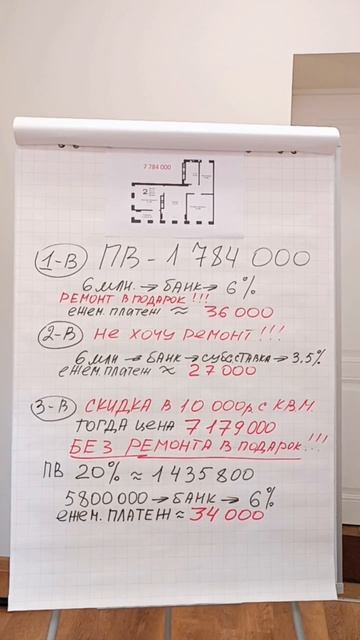 7 784 000
2
1-В ПВ - 1 784 000
6 млн. → БАНК → 6%
РЕМОНТ В ПОДАРОК !!!
ежем платеж ≈ 36 000
2-В НЕ ХОЧУ РЕМОНТ !!!
6 млн → БАНК → СУБСТАВКА → 3,5%
ежем платеж ≈ 27 000
3-В СКИДКА В 10 000 р с КВ.М.
ТОГДА ЦЕНА 7 179 000
БЕЗ РЕМОНТА В ПОДАРОК !!!
ПВ 20% ≈ 1 435 800
5 800 000 → БАНК → 6%
ежем. ПЛАТЕЖ ≈ 34 000